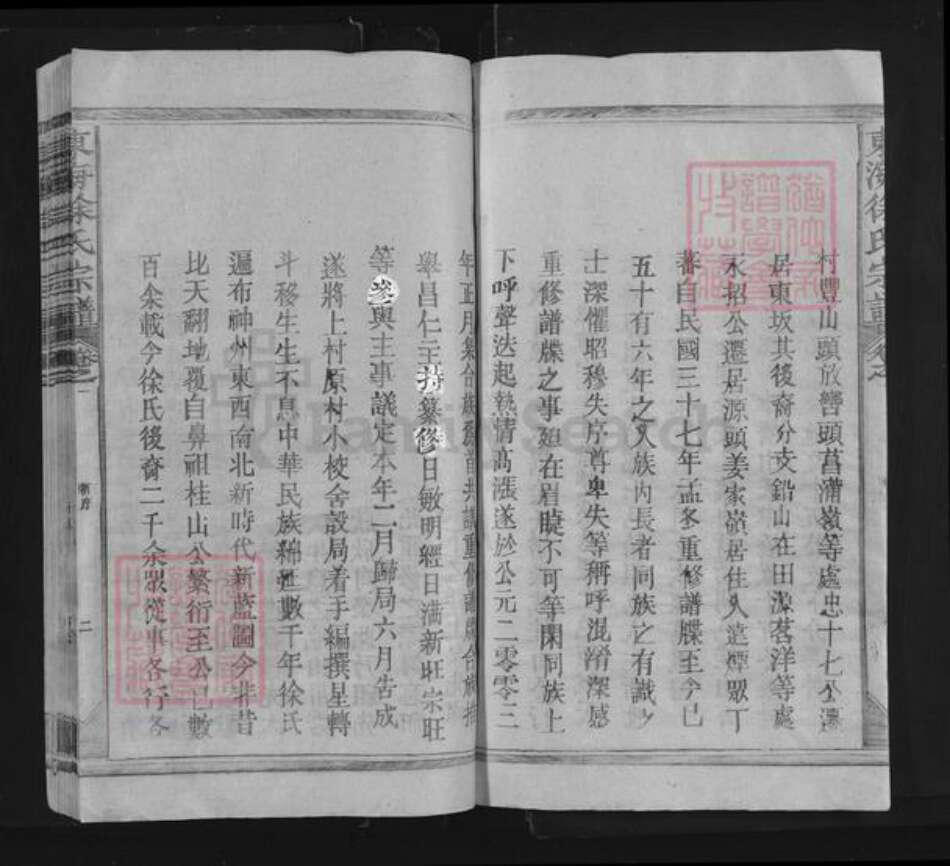 東海徐氏宗譜
村豐山頭放轡頭菖蒲嶺等處忠十七公濂
居東坂其後裔分支鉛山在田源茗洋等處
永招公遷居源頭姜家嶺居住人造煙眾丁
蕃自民國三十七年孟冬重修譜牒至今已
五十有六年之久族內長者同族之有識之
士深懼昭穆失序尊卑失等稱呼混淆深感
重修譜牒之事廹在眉睫不可等閑同族上
下呼聲迭起熱情高漲遂於公元二零零三
年正月集合族
舉昌仁主持纂修日敏明經日满新旺宗旺
等參與主事議定本年二月歸局六月告成
遂將上村原村小校舍設局着手編撰星轉
斗移生生不息中華民族綿延數千年徐氏
遍布神州東西南北新時代新藍圖今非昔
比天翻地覆自鼻祖桂山公繁衍至公已數
百余載今徐氏後裔二千余眾從事各行各
東海徐氏宗譜
卷之一
新序
二
FamilySearch